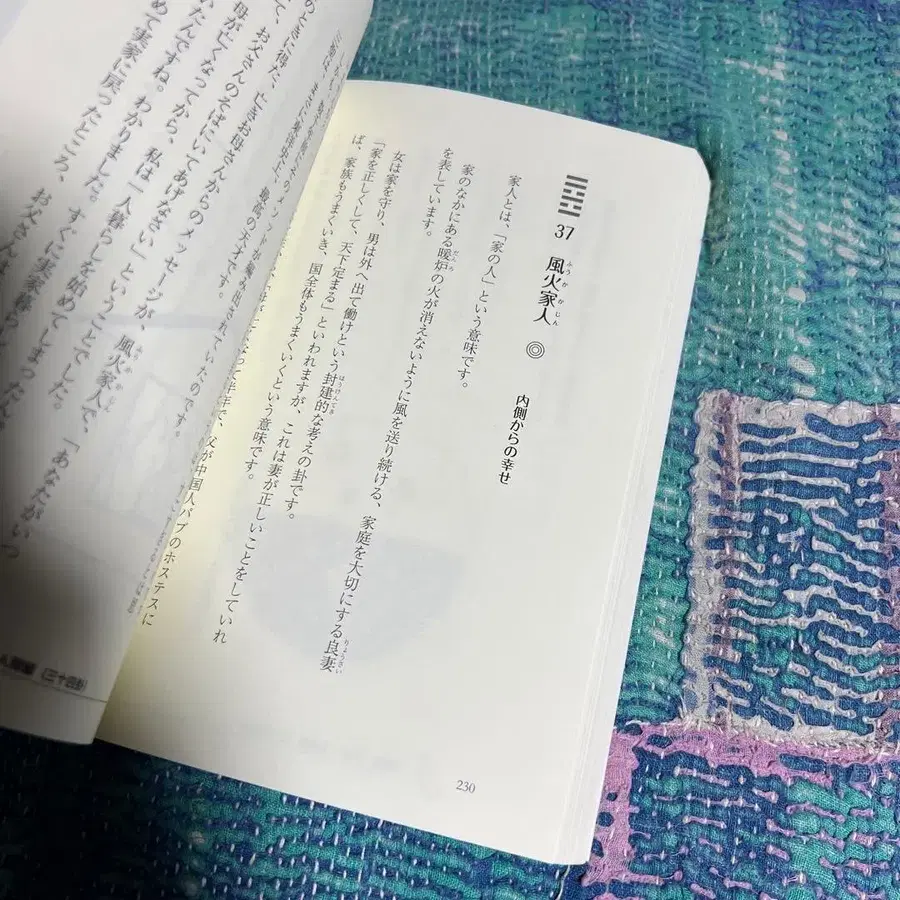 37 風火家人 ◎ 内側からの幸せ
家人とは、「家の人」という意味です。
家のなかにある暖炉の火が消えないように風を送り続ける、家庭を大切にする良妻
を表しています。
女は家を守り、男は外へ出て働けという封建的な考えの卦です。
「家を正しくして、天下定まる」といわれますが、これは妻が正しいことをしていれ
ば、家族もうまくいき、国全体もうまくいくという意味です。
半年で、父が中国人パブのホステスに
230
み出されていたのです。
最高の天才です。
のときに得た、亡きお母さんからのメッセージが、風火家人で、「あなたがいつ
て、お父さんのそばにいてあげなさい」ということでした。
母が亡くなってから、私は一人暮らし
始めてしまったん
いたんですね。わかりました。すぐに実家
めて実家に戻ったところ、お父さんは